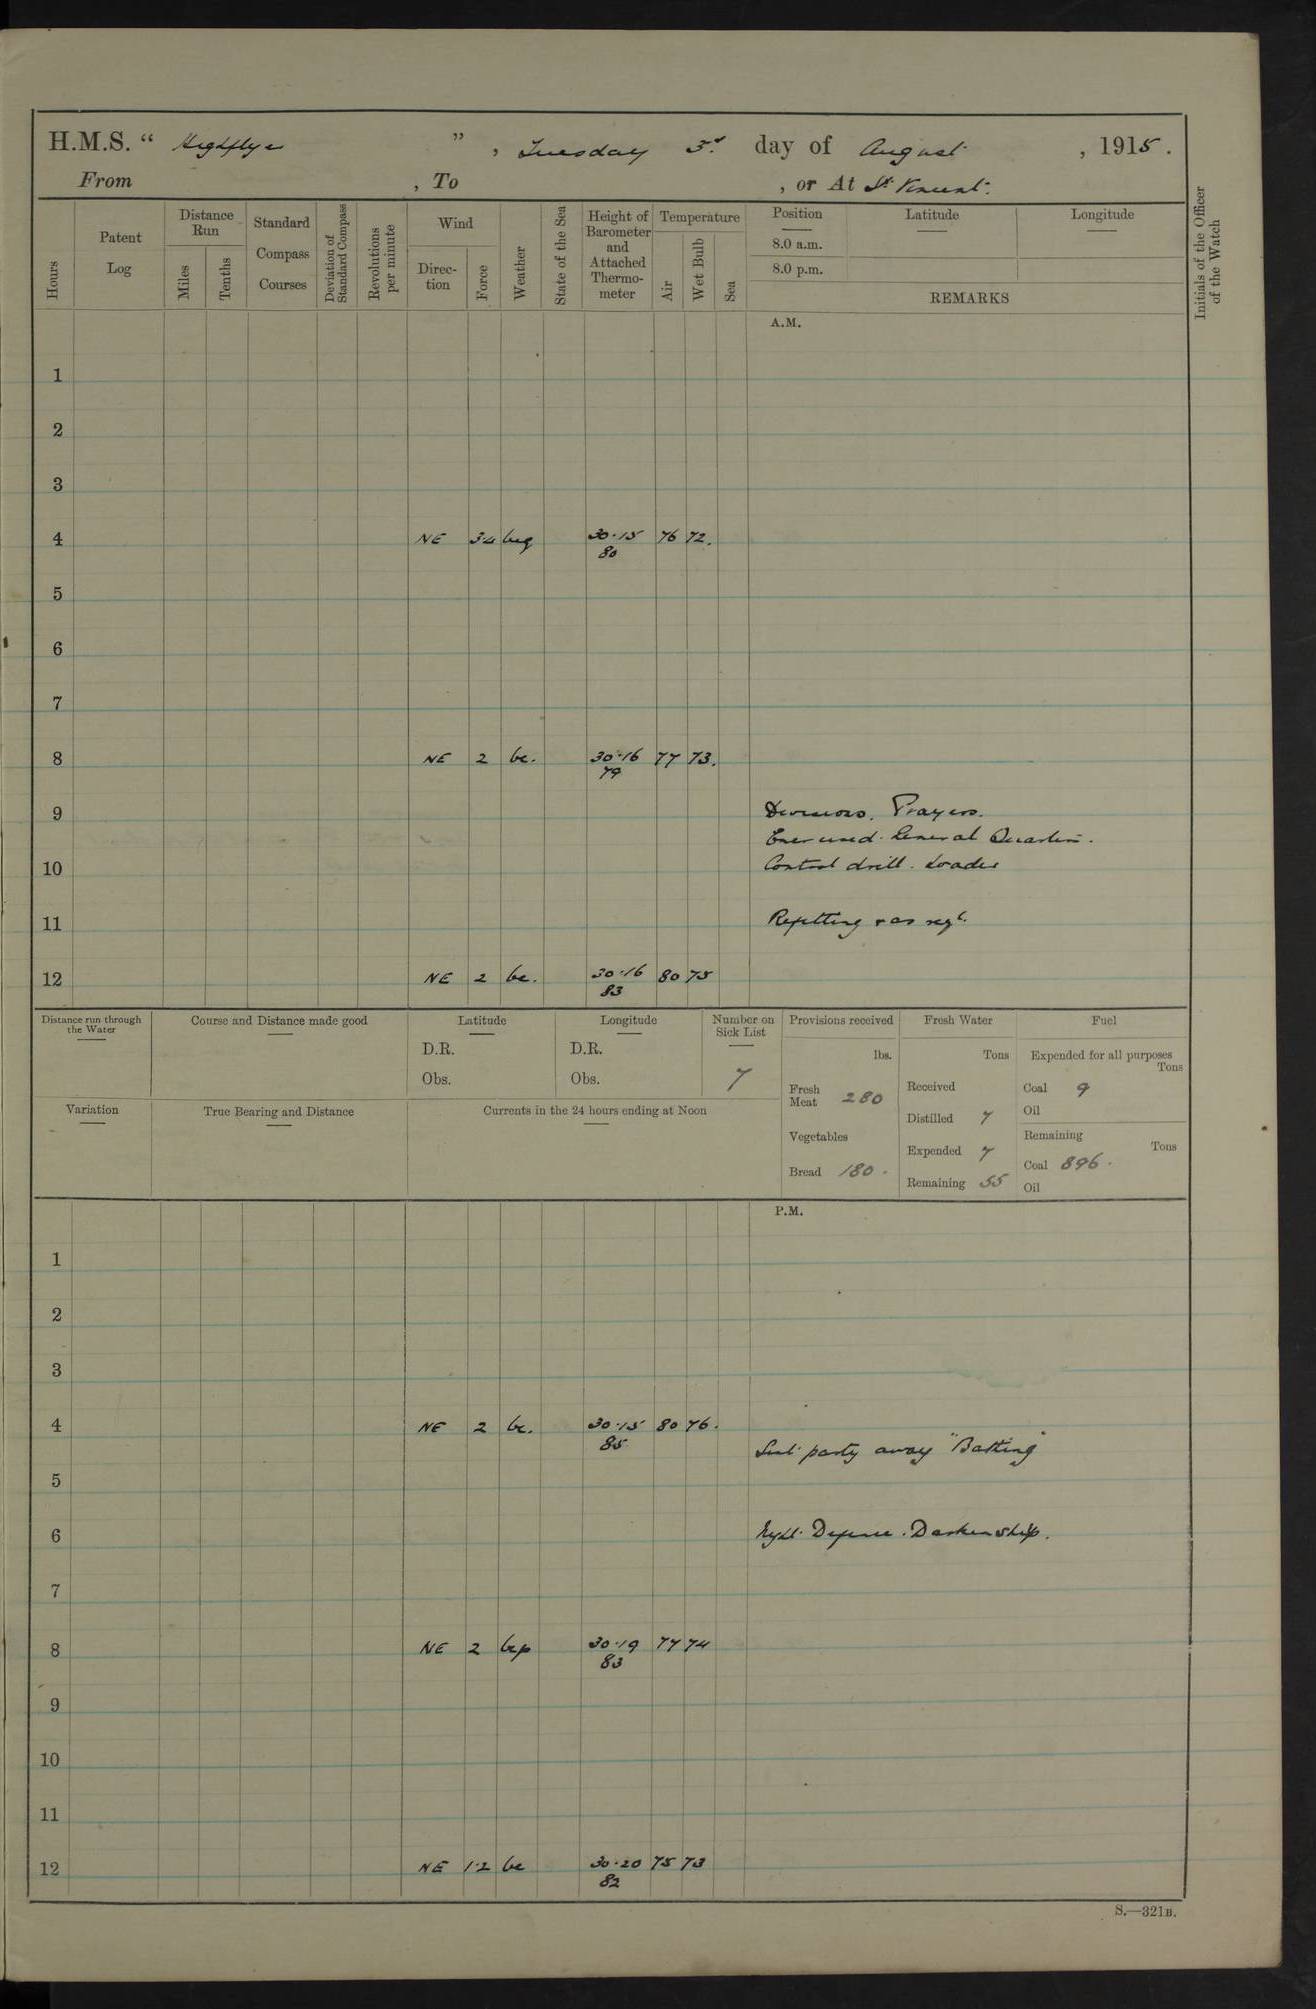 H.M.S. “ Highflyer ” , Tuesday 3rd day of August , 1915 .
From , To , or At St Vincent.
Hours
Patent Log
Distance Run
Miles
Tenths
Standard Compass Courses
Deviation of Standard Compass
Revolutions per minute
Wind
Direc-tion
Force
Weather
State of the Sea
Height of Barometer and Attached Thermo-meter
Temperature
Air
Wet Bulb
Sea
Position
8.0 a.m.
8.0 p.m.
Latitude
Longitude
REMARKS
Initials of the Officer of the Watch
A.M.
1
2
3
4 NE 3.4 30.15 76 72.
80
5
6
7
8 NE 2 bc. 30.16 77 73.
79
9 Divisions. Prayers.
Exercised General Quarters.
10 Control drill. Loader
11 Refitting & as reqt.
12 NE 2 bc. 30.16 80 75
83
Distance run through the Water
Course and Distance made good
Latitude
D.R.
Obs.
Longitude
D.R.
Obs.
Number on Sick List
7
Provisions received
lbs.
Fresh Meat 280
Vegetables
Bread 180.
Fresh Water
Tons
Received
Distilled 7
Expended 7
Remaining 55
Fuel
Expended for all purposes
Tons
Coal 9
Oil
Remaining
Tons
Coal 896.
Oil
Variation
True Bearing and Distance
Currents in the 24 hours ending at Noon
P.M.
1
2
3
4 NE 2 bc. 30.15 80 76.
85
party away "
5
6 Night Defence. Darken ship.
7
8 NE 2 bcp 30.19 77 74
83
9
10
11
12 NE 1.2 bc 30.20 75 73
82
S.—321B.